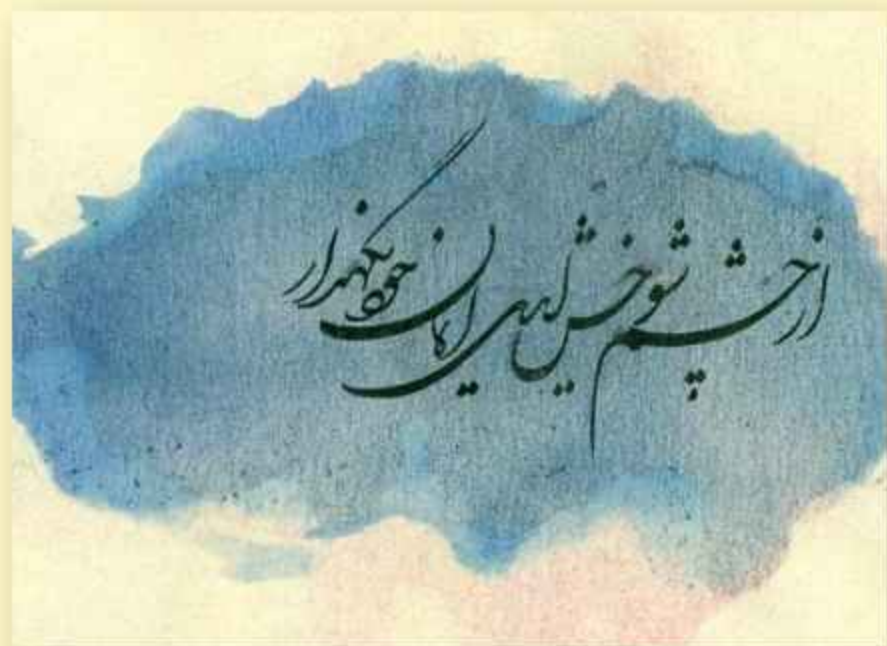 از چشم شوخش ای دل ایمان خود نگهدار